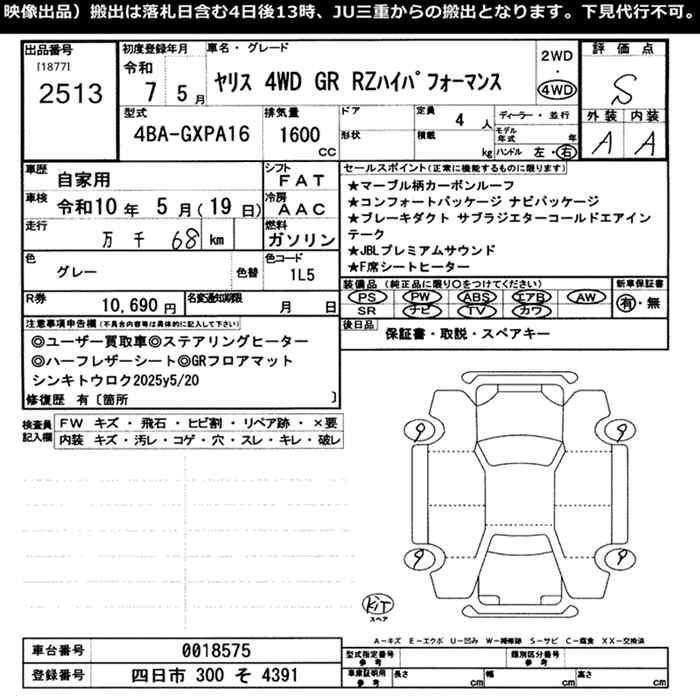 映像出品）搬出は落札日含む4日後13時、JU三重からの搬出となります。下見代行不可。
出品番号
[1877]
2513
初度登録年月
令和
7 5月
車名・グレード
ヤリス 4WD GR RZハイパフォーマンス
2WD
・
4WD
評価点
S
外装 内装
A A
型式
4BA-GXPA16
排気量
1600
CC
ドア
形状
定員
4 人
積載
kg
ディーラー・並行
モデル年式 年
ハンドル 左・右
車歴
自家用
シフト
FAT
車検
令和10年 5月(19日)
冷房
AAC
走行
万 千 68 km
燃料
ガソリン
色
グレー
色替
色コード
1L5
R券
10,690 円
名変通知期限
月 日
セールスポイント(正常に機能するものに限ります)
★マーブル柄カーボンルーフ
★コンフォートパッケージ ナビパッケージ
★ブレーキダクト サブラジエターコールドエアイン
テーク
★JBLプレミアムサウンド
★F席シートヒーター
装備品(純正品に限り○をつけてください)
PS PW ABS エアB AW
SR ナビ TV カワ
新車保証書
有・無
後日品
保証書・取説・スペアキー
注意事項申告欄(不具合内容等は具体的に記入して下さい)
◎ユーザー買取車◎ステアリングヒーター
◎ハーフレザーシート◎GRフロアマット
シンキトウロク2025y5/20
修復歴 有〔箇所 〕
検査員記入欄
FW キズ・飛石・ヒビ割・リペア跡・×要
内装 キズ・汚レ・コゲ・穴・スレ・キレ・破レ
9 9
9 9
KIT
スペア
A−キズ E−エクボ U−凹み W−補修跡 S−サビ C−腐食 XX−交換済
車台番号
0018575
登録番号
四日市 300 そ 4391
型式指定番号
参考
類別区分番号
参考
車庫証明用
参考
長さ cm 幅 cm 高さ cm